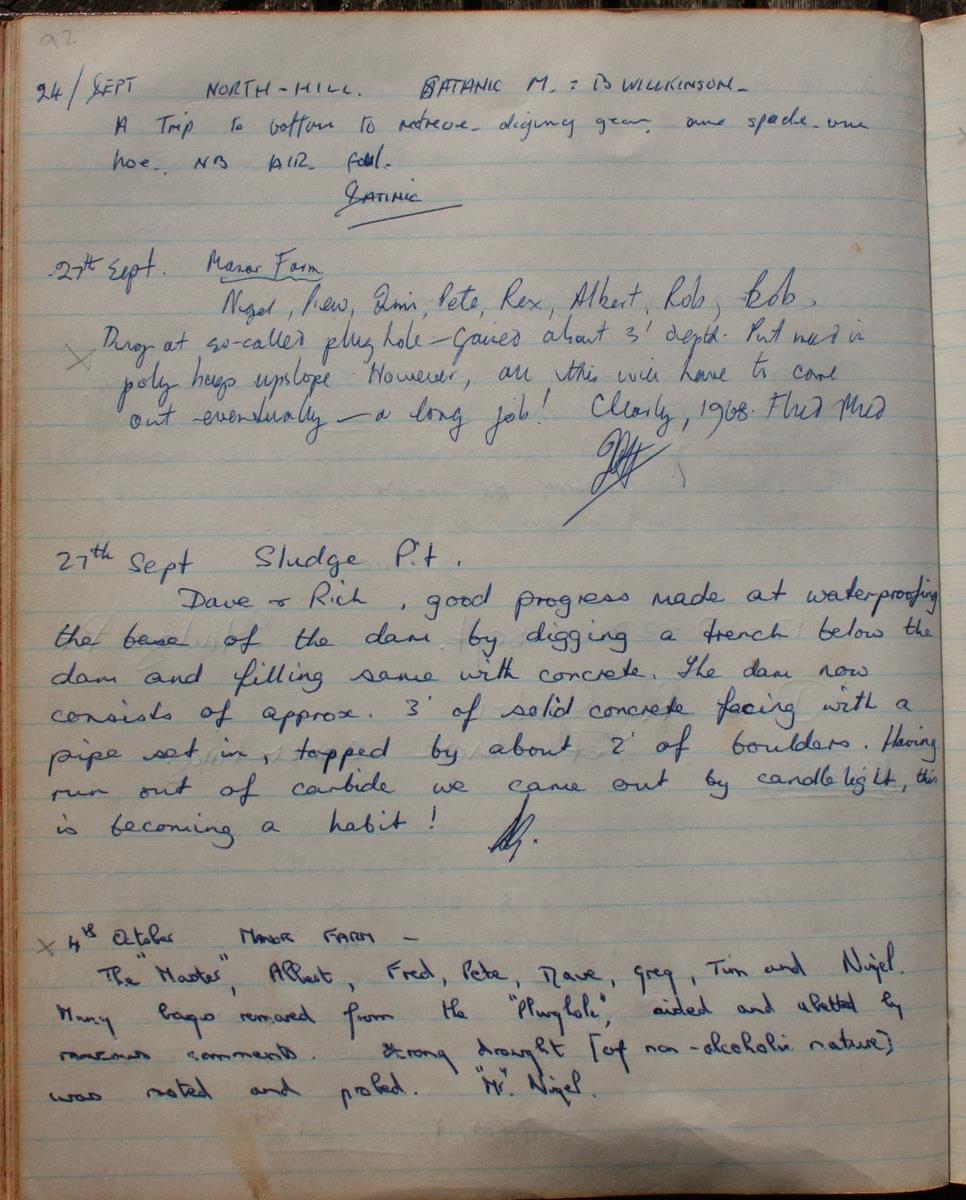 92
24/SEPT NORTH-HILL. SATANIC M. : B WILLKINSON-
A Trip to bottom to retreve digging gear, one spade one
hoe. NB AIR foul.
SATINIC
27th Sept. Manor Farm
Nigel, Pew, Quin, Pete, Rex, Albert, Rob, Bob,
Dug at so-called plughole - Gained about 3' depth. Put mud in
poly bags upslope. However, all this will have to come
out eventually - a long job! Clearly, 1968 Flud Mud
27th Sept Sludge Pit.
Dave & Rich, good progress made at waterproofing
the base of the dam by digging a trench below the
dam and filling same with concrete. The dam now
consists of approx. 3' of solid concrete facing with a
pipe set in, topped by about 2' of boulders. Having
run out of carbide we came out by candlelight, this
is becoming a habit!
X 4th October MANOR FARM -
The "Master", Albert, Fred, Pete, Dave, Greg, Tim and Nigel.
Many bags removed from the "Plughole", aided and abetted by
comments. Strong draught [of non-alcoholic nature]
was noted and probed. "Mr". Nigel.